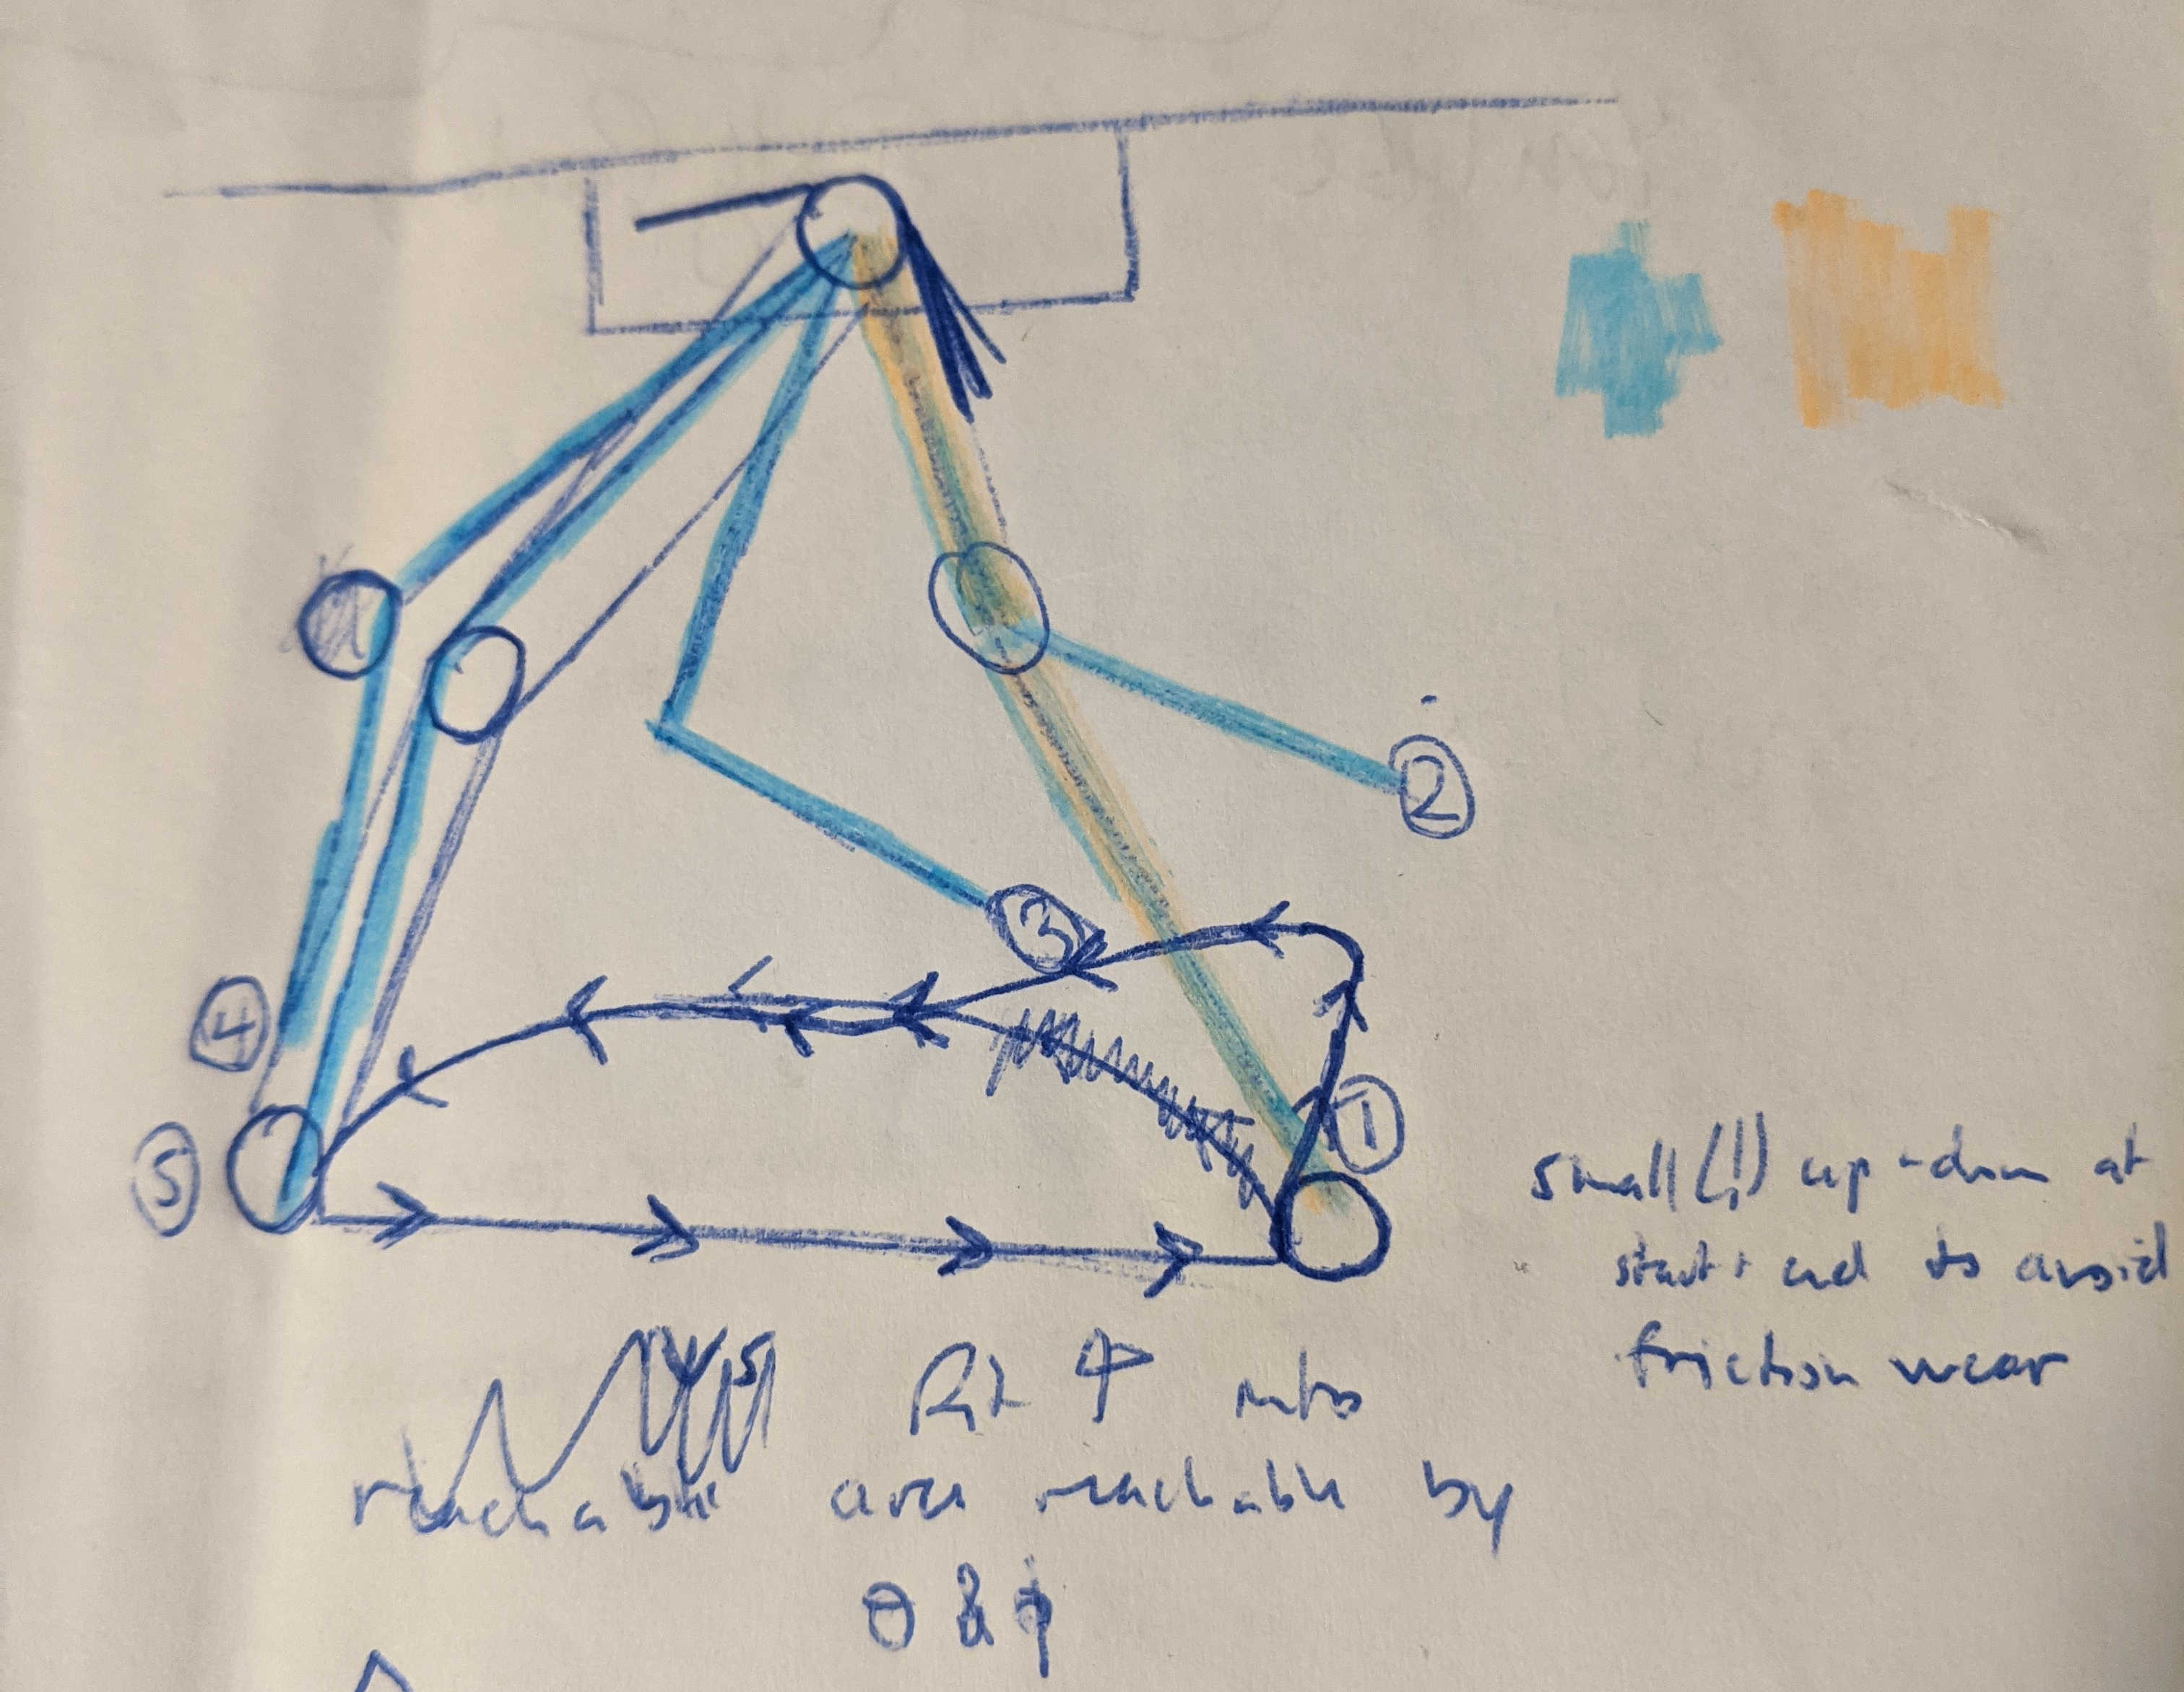 2
3
4
1
5
small(!) up-down at
start + end to avoid
friction wear
Pit into
reachable area reachable by
θ & φ